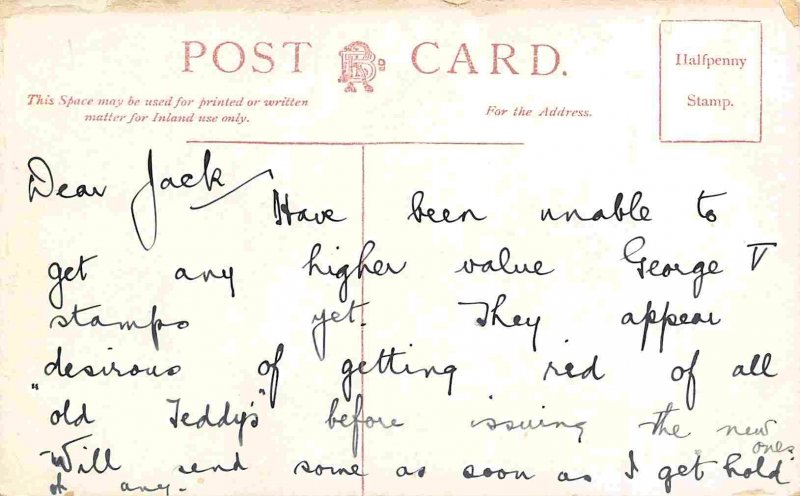 POST CARD.
Halfpenny
Stamp.
This Space may be used for printed or written
matter for Inland use only.
For the Address.
Dear Jack
Have been unable to
get any higher value George V
stamps yet. They appear
desirous of getting rid of all
"old Teddy's" before issuing the new
ones.
Will send some as soon as I get hold
of any.